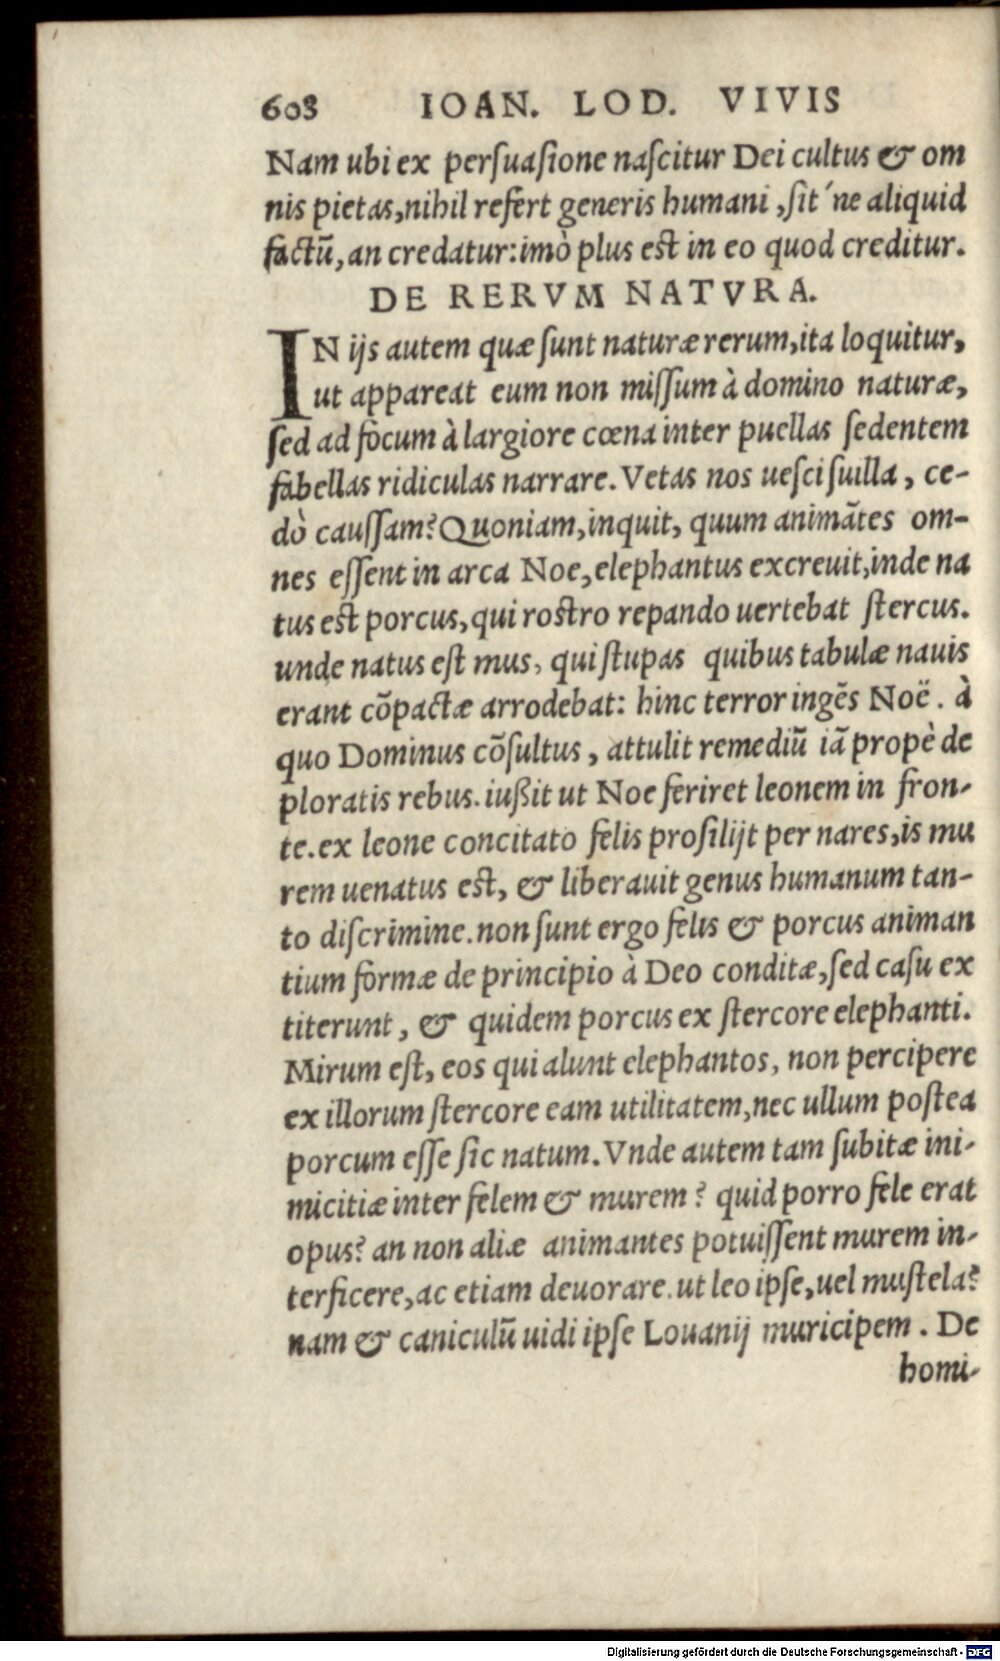 608 IOAN. LOD. VIVIS
Nam ubi ex persuasione nascitur Dei cultus & om
nis pietas, nihil refert generis humani, sit´ne aliquid
factũ, an credatur: imò plus est in eo quod creditur.
DE RERVM NATVRA.
IN ijs autem quæ sunt naturæ rerum, ita loquitur,
ut appareat eum non missum à domino naturæ,
sed ad focum à largiore cœna inter puellas sedentem
fabellas ridiculas narrare. Vetas nos uesci suilla, ce-
dò caussam? Quoniam, inquit, quum animãtes om-
nes essent in arca Noe, elephantus excreuit, inde na
tus est porcus, qui rostro repando uertebat stercus.
unde natus est mus, qui stupas quibus tabulæ nauis
erant cõpactæ arrodebat: hinc terror ingẽs Noë. à
quo Dominus cõsultus, attulit remediũ iã propè de
ploratis rebus. iußit ut Noe feriret leonem in fron-
te. ex leone concitato felis prosilijt per nares, is mu
rem uenatus est, & liberauit genus humanum tan-
to discrimine. non sunt ergo felis & porcus animan
tium formæ de principio à Deo conditæ, sed casu ex
titerunt, & quidem porcus ex stercore elephanti.
Mirum est, eos qui alunt elephantos, non percipere
ex illorum stercore eam utilitatem, nec ullum postea
porcum esse sic natum. Vnde autem tam subitæ ini-
micitiæ inter felem & murem? quid porro fele erat
opus? an non aliæ animantes potuissent murem in-
terficere, ac etiam deuorare. ut leo ipse, uel mustela?
nam & caniculũ uidi ipse Louanij muricipem. De
homi-
Digitalisierung gefördert durch die Deutsche Forschungsgemeinschaft - DFG